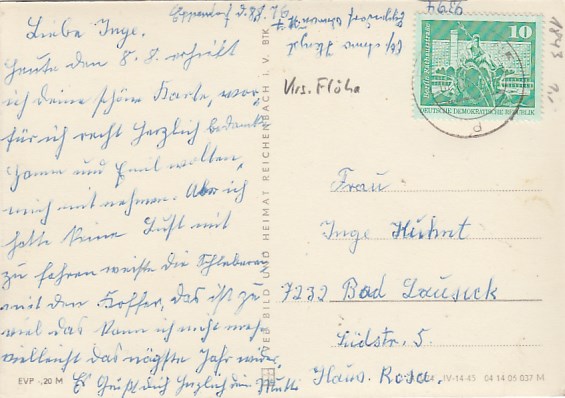 Eppendorf d. 8.8. 76
Liebe Inge.
Heute den 8. 8. erhielt
ich deine schöne Karte, wo
für ich recht herzlich bedanke
und Emil wollten,
mich mit nehmen. Aber ich
hatte keine Lust mit
zu fahren weißte die Schleberei
mit den Koffer, das ist zu
viel das kann ich nicht mehr
vielleicht das nägste Jahr wieder
Es Grüßt dich Herzlich dein Mutti
EVP -,20 M
VEB BILD UND HEIMAT REICHENBACH I. V. BTK
Krs. Flöha
9394
1843
10
Berlin, Rathausstraße
DEUTSCHE DEMOKRATISCHE REPUBLIK
Frau
Inge Kuhnt
7232 Bad Lausick
Südstr. 5.
Haus. Rosa.
IV-14-45 04 14 05 037 M